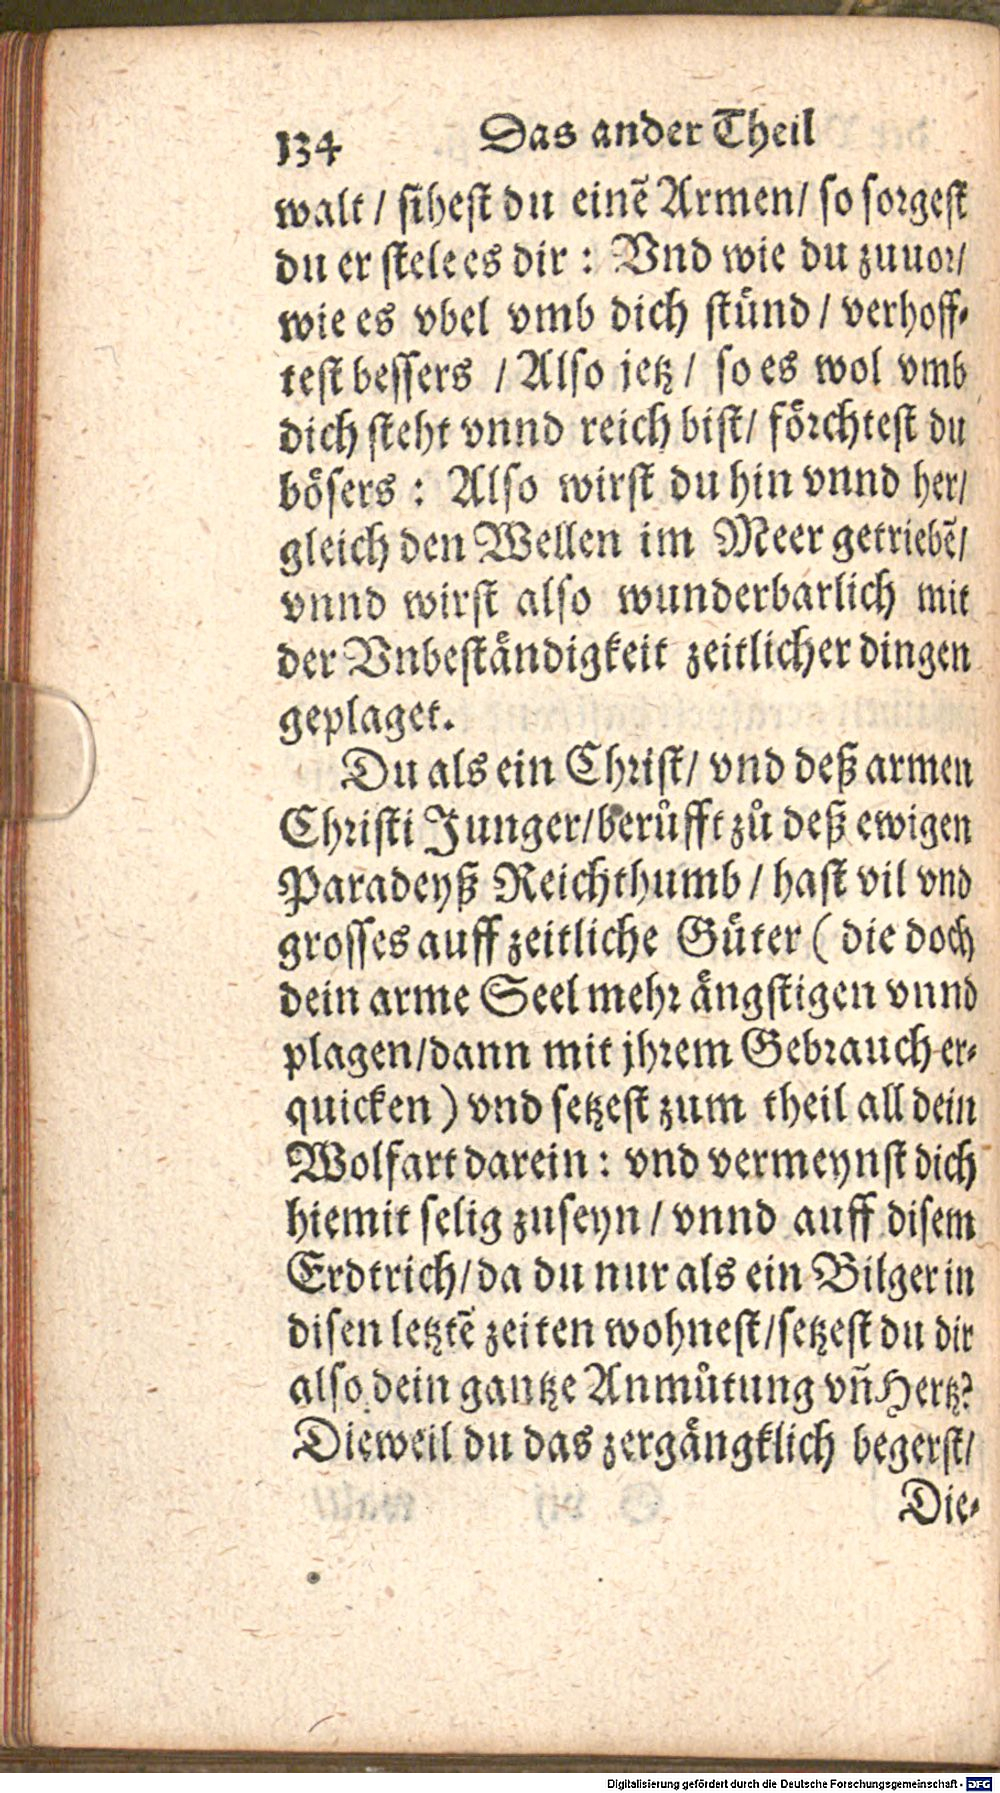 134 Das ander Theil
walt / sihest du einē Armen / so sorgest
du er stele es dir : Vnd wie du zuuor /
wie es vbel vmb dich stünd / verhoff-
test bessers / Also jetz / so es wol vmb
dich steht vnnd reich bist / förchtest du
bösers : Also wirst du hin vnnd her /
gleich den Wellen im Meer getriebē /
vnnd wirst also wunderbarlich mit
der Vnbeständigkeit zeitlicher dingen
geplaget.
Du als ein Christ / vnd deß armen
Christi Junger / berůfft zů deß ewigen
Paradeyß Reichthumb / hast vil vnd
grosses auff zeitliche Güter ( die doch
dein arme Seel mehr ängstigen vnnd
plagen / dann mit jhrem Gebrauch er-
quicken ) vnd setzest zum theil all dein
Wolfart darein : vnd vermeynst dich
hiemit selig zuseyn / vnnd auff disem
Erdtrich / da du nur als ein Bilger in
disen letztē zeiten wohnest / setzest du dir
also dein gantze Anmůtung vñ Hertz?
Dieweil du das zergängklich begerst /
Die-
Digitalisierung gefördert durch die Deutsche Forschungsgemeinschaft - DFG